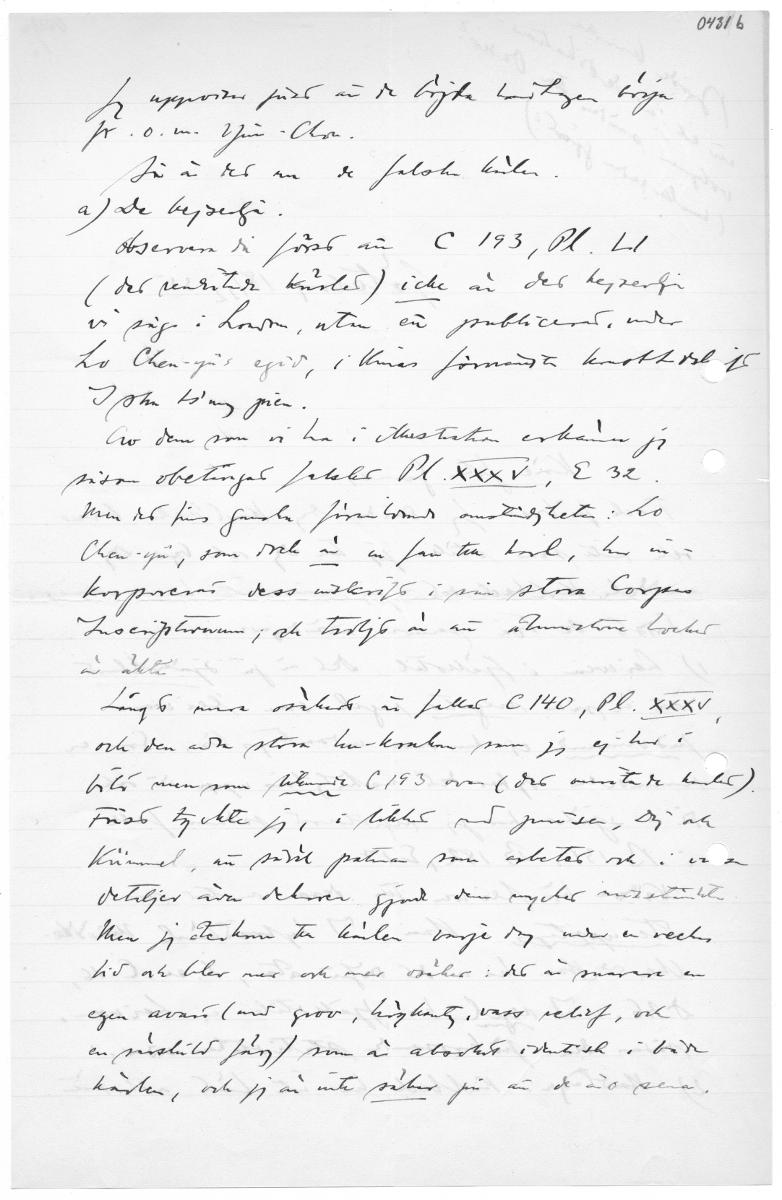 0431 b
Jag uppvisar först att de böjda handtagen börja
fr.o.m. Yin-Chou.
Så är det nu de falska kärlen.
a) De kejserliga.
Observera då först att C 193, Pl. LI
(det omvända kärlet) icke är det kejserliga
vi sågo i London, utan ett publicerat, under
Lo Chen-yü's egid, i Kinas förnämsta
I shu ts'ung pien.
Av dem som vi ha i illustration erkänner jag
såsom obetingat falskt Pl. XXXV, E 32.
Men det finns ganska förmildrande omständigheter: Lo
Chen-yü, som dock är en karl, har in-
korporerat dess inskrift i sin stora Corpus
Inscriptionum; och troligt är att åtminstone locket
är äkta
Långt mera osäkert är fallet C 140, Pl. XXXV,
och den andra stora hu-krukan som jag ej har i
bild men som liknande C 193 ovan (det omvända kärlet).
Först tyckte jag, i likhet med Dig och
Kümmel, att såväl patinan som arbetet och i vissa
detaljer även dekoren gjorde dem mycket misstänkta.
Men jag återkom till kärlen varje dag under en veckas
tid och blev mer och mer osäker: det är snarare en
egen avart (med grov, högkantig, vass relief, och
en särskild färg) som är absolut identisk i båda
kärlen, och jag är inte säker på att de äro sena.